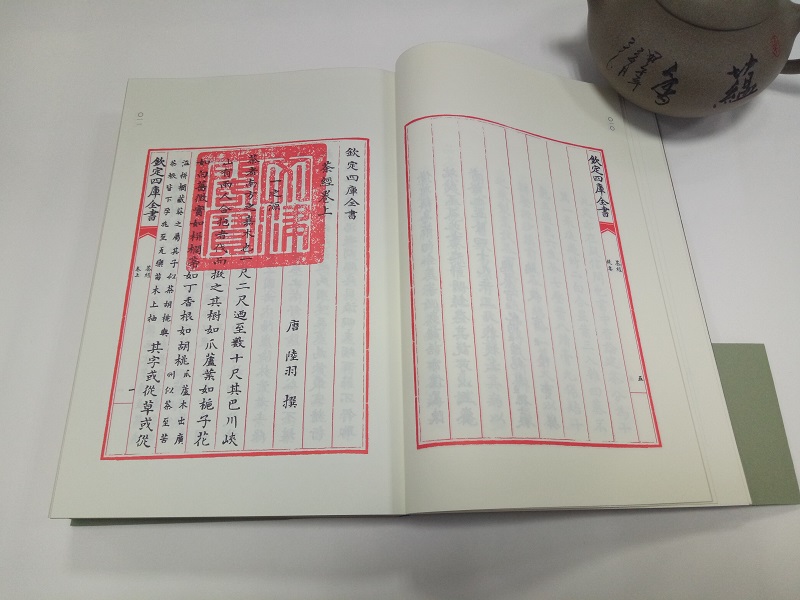 蘊香
〇一〇
欽定四庫全書
茶經
提要
五
〇一一
欽定四庫全書
茶經卷上
唐 陸羽 撰
之源
茶者南方之嘉木也一尺二尺迺至數十尺其巴川峽
山有兩人合抱者伐而掇之其樹如瓜蘆葉如梔子花
如白薔薇實如栟櫚蒂如丁香根如胡桃
瓜蘆木出廣
州似茶至苦
澁栟櫚蒲葵之屬其子似茶胡桃與
茶根皆下孕兆至瓦礫苗木上抽
其字或從草或從
欽定四庫全書
茶經
卷上
一